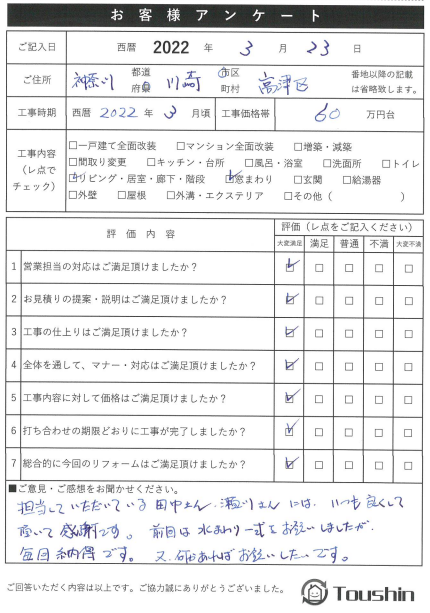 お客様アンケート
ご記入日 西暦 2022 年 3 月 23 日
ご住所 神奈川 都道府県 川崎 市区町村 高津区 番地以降の記載は省略致します。
工事時期 西暦 2022 年 3 月頃 工事価格帯 60 万円台
工事内容（レ点でチェック）
□一戸建て全面改装 □マンション全面改装 □増築・減築
□間取り変更 □キッチン・台所 □風呂・浴室 □洗面所 □トイレ
☑リビング・居室・廊下・階段 ☑窓まわり □玄関 □給湯器
□外壁 □屋根 □外溝・エクステリア □その他（ ）
評価内容 評価（レ点をご記入ください）
大変満足 満足 普通 不満 大変不満
1 営業担当の対応はご満足頂けましたか？ ☑ □ □ □ □
2 お見積りの提案・説明はご満足頂けましたか？ ☑ □ □ □ □
3 工事の仕上りはご満足頂けましたか？ ☑ □ □ □ □
4 全体を通して、マナー・対応はご満足頂けましたか？ ☑ □ □ □ □
5 工事内容に対して価格はご満足頂けましたか？ ☑ □ □ □ □
6 打ち合わせの期限どおりに工事が完了しましたか？ ☑ □ □ □ □
7 総合的に今回のリフォームはご満足頂けましたか？ ☑ □ □ □ □
■ご意見・ご感想をお聞かせください。
担当していただいている田中さん、瀬川さんには、いつも良くして
頂いて感謝です。前回は水まわり一式をお願いしましたが、
毎回納得です。又、何かあればお願いしたいです。
ご回答いただく内容は以上です。ご協力誠にありがとうございました。
Toushin